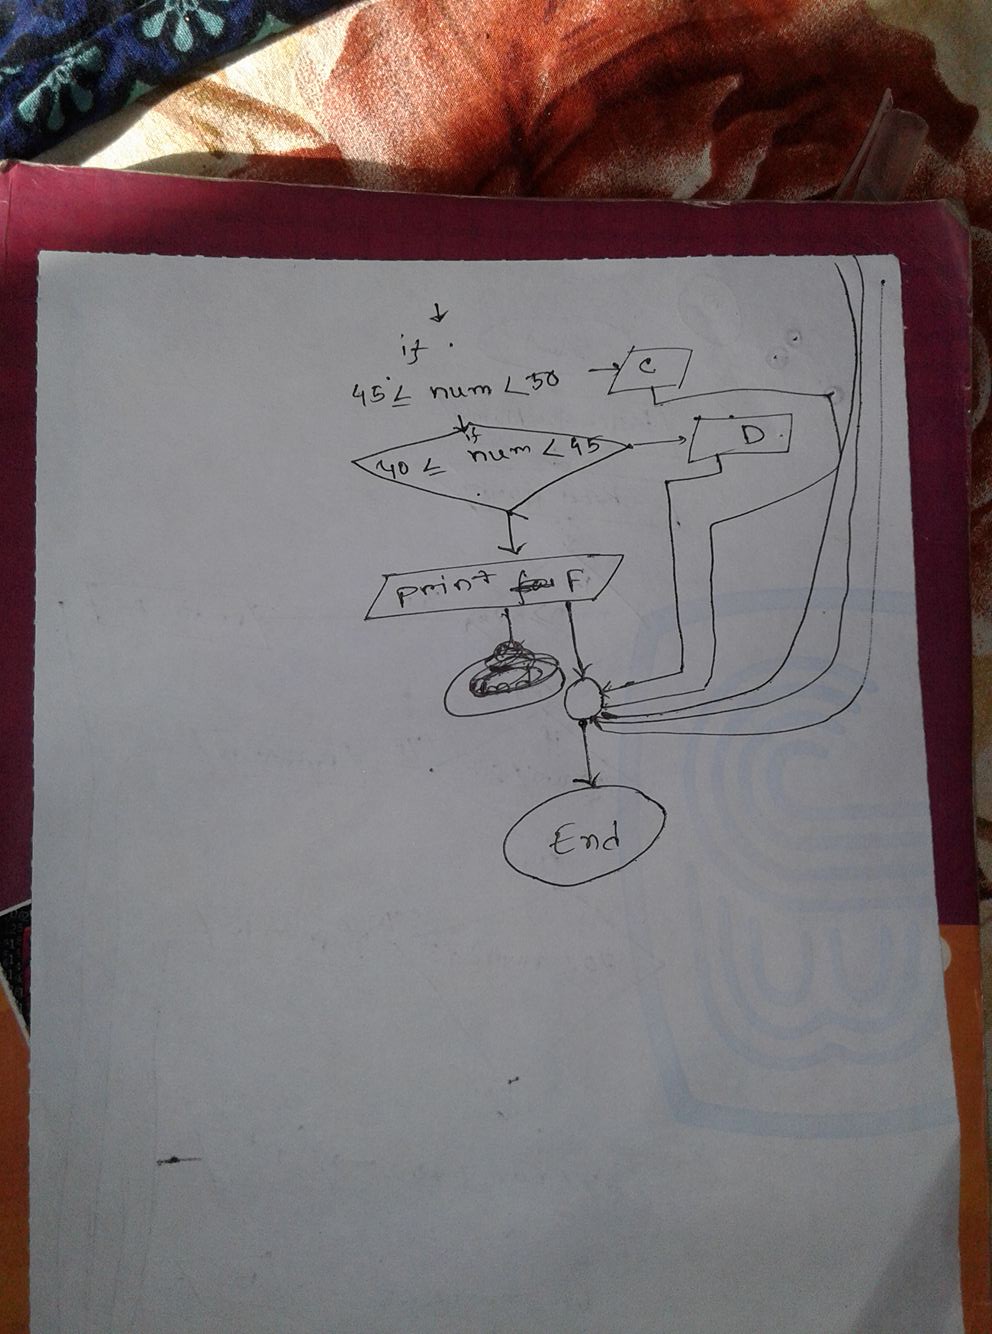 if
45 ≤ num < 50
C
if
40 ≤ num < 45
D
print F
End